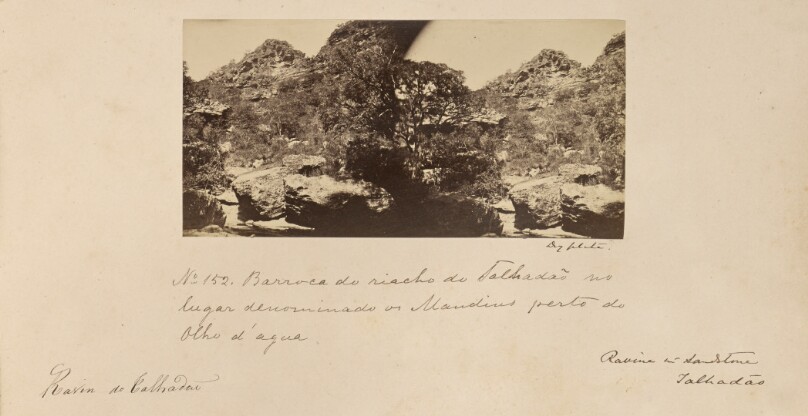 Dry plate.
Nº 152. Barroca do riacho do Talhadão no
lugar denominado os Mandins perto do
Olho d'agua.
Ravine in Sandstone
Talhadão
Ravin do Talhadão